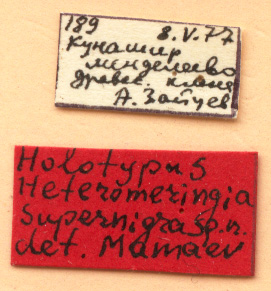 189 8.V.77
Кунашир
Менделеево
древес. клена
А. Зайцев
Holotypus
Heteromeringia
supernigra sp.n.
det. Mamaev